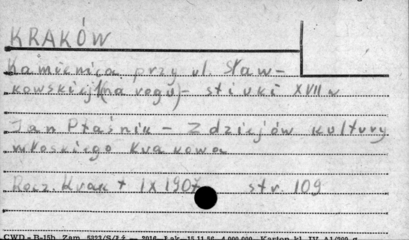 KRAKÓW
Kamienica przy ul. Sław-
kowskiej (na rogu) - stiuki XVII w
Jan Ptaśnik - Z dziejów kultury
włoskiego Krakowa
Rocz. Krak t IX 1907 str. 109
CWD - B-15b. Zam. 5223/S/Lż. — 2016 - Łak. 15.11.50 - 4.000.000 - Karton kl. IV. A1/200 g